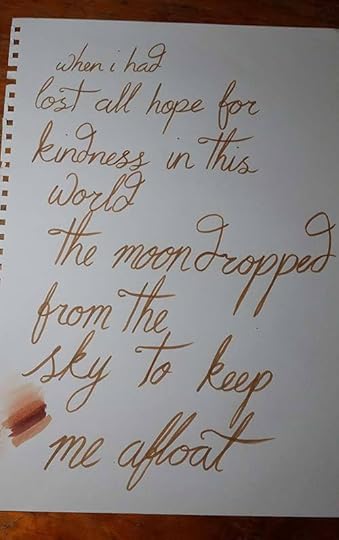 when i had
lost all hope for
kindness in this
world
the moon dropped
from the
sky to keep
me afloat